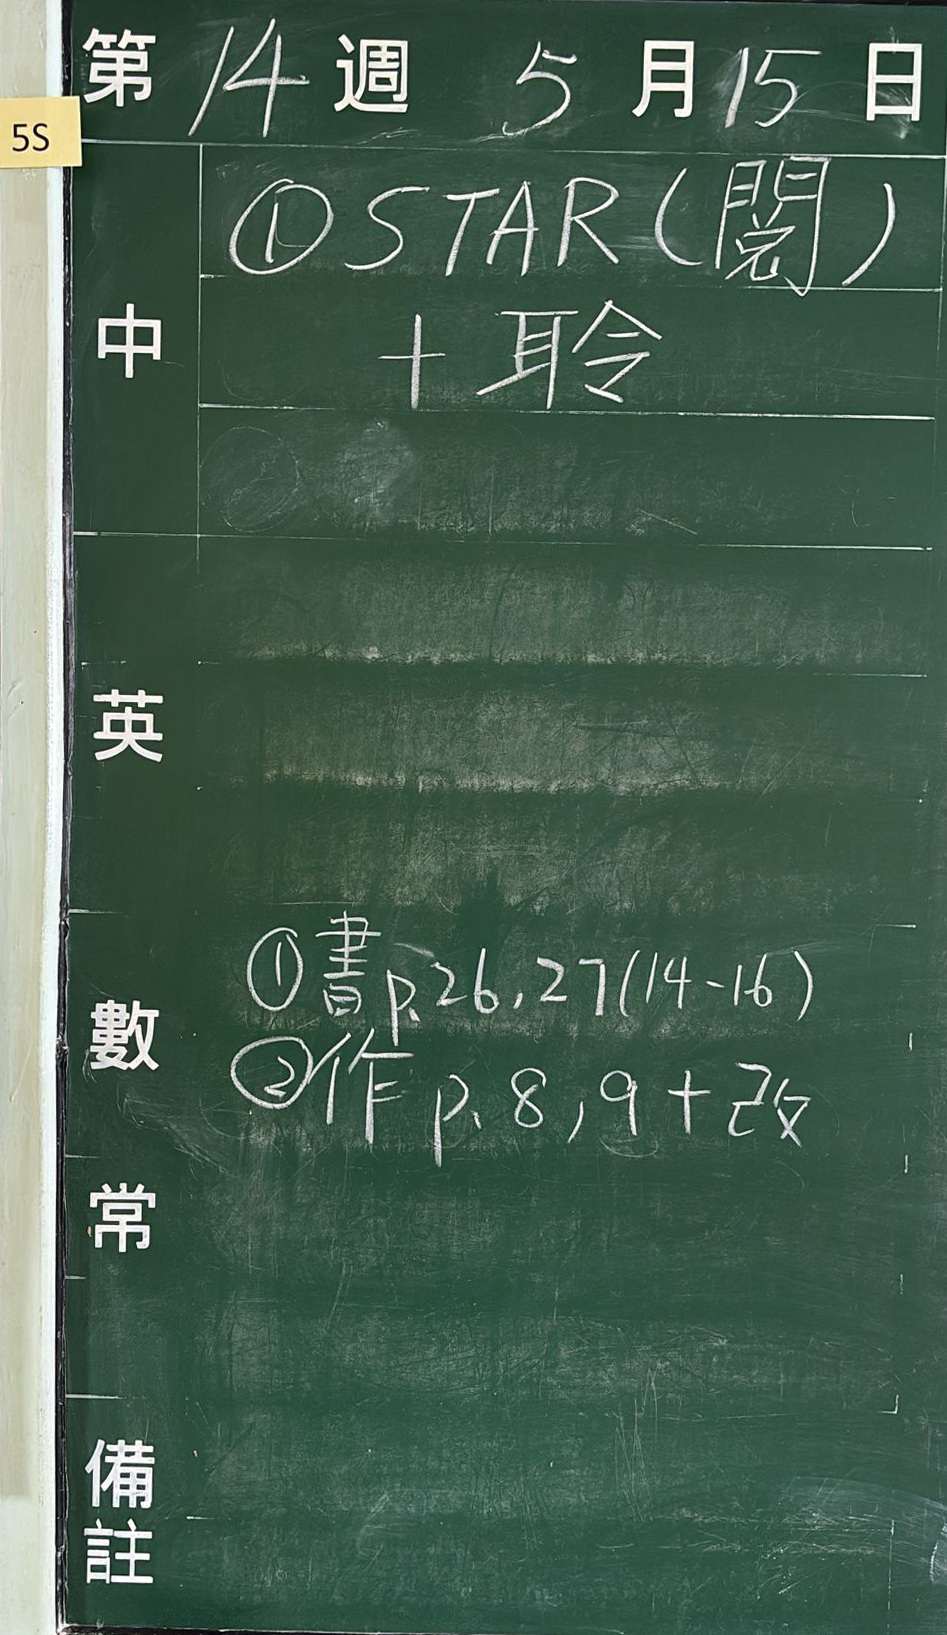 第14週 5月15日
5S
中
①STAR(閱)
+聆
英
數
①書p.26,27(14-16)
②作p.8,9+改
常
備註